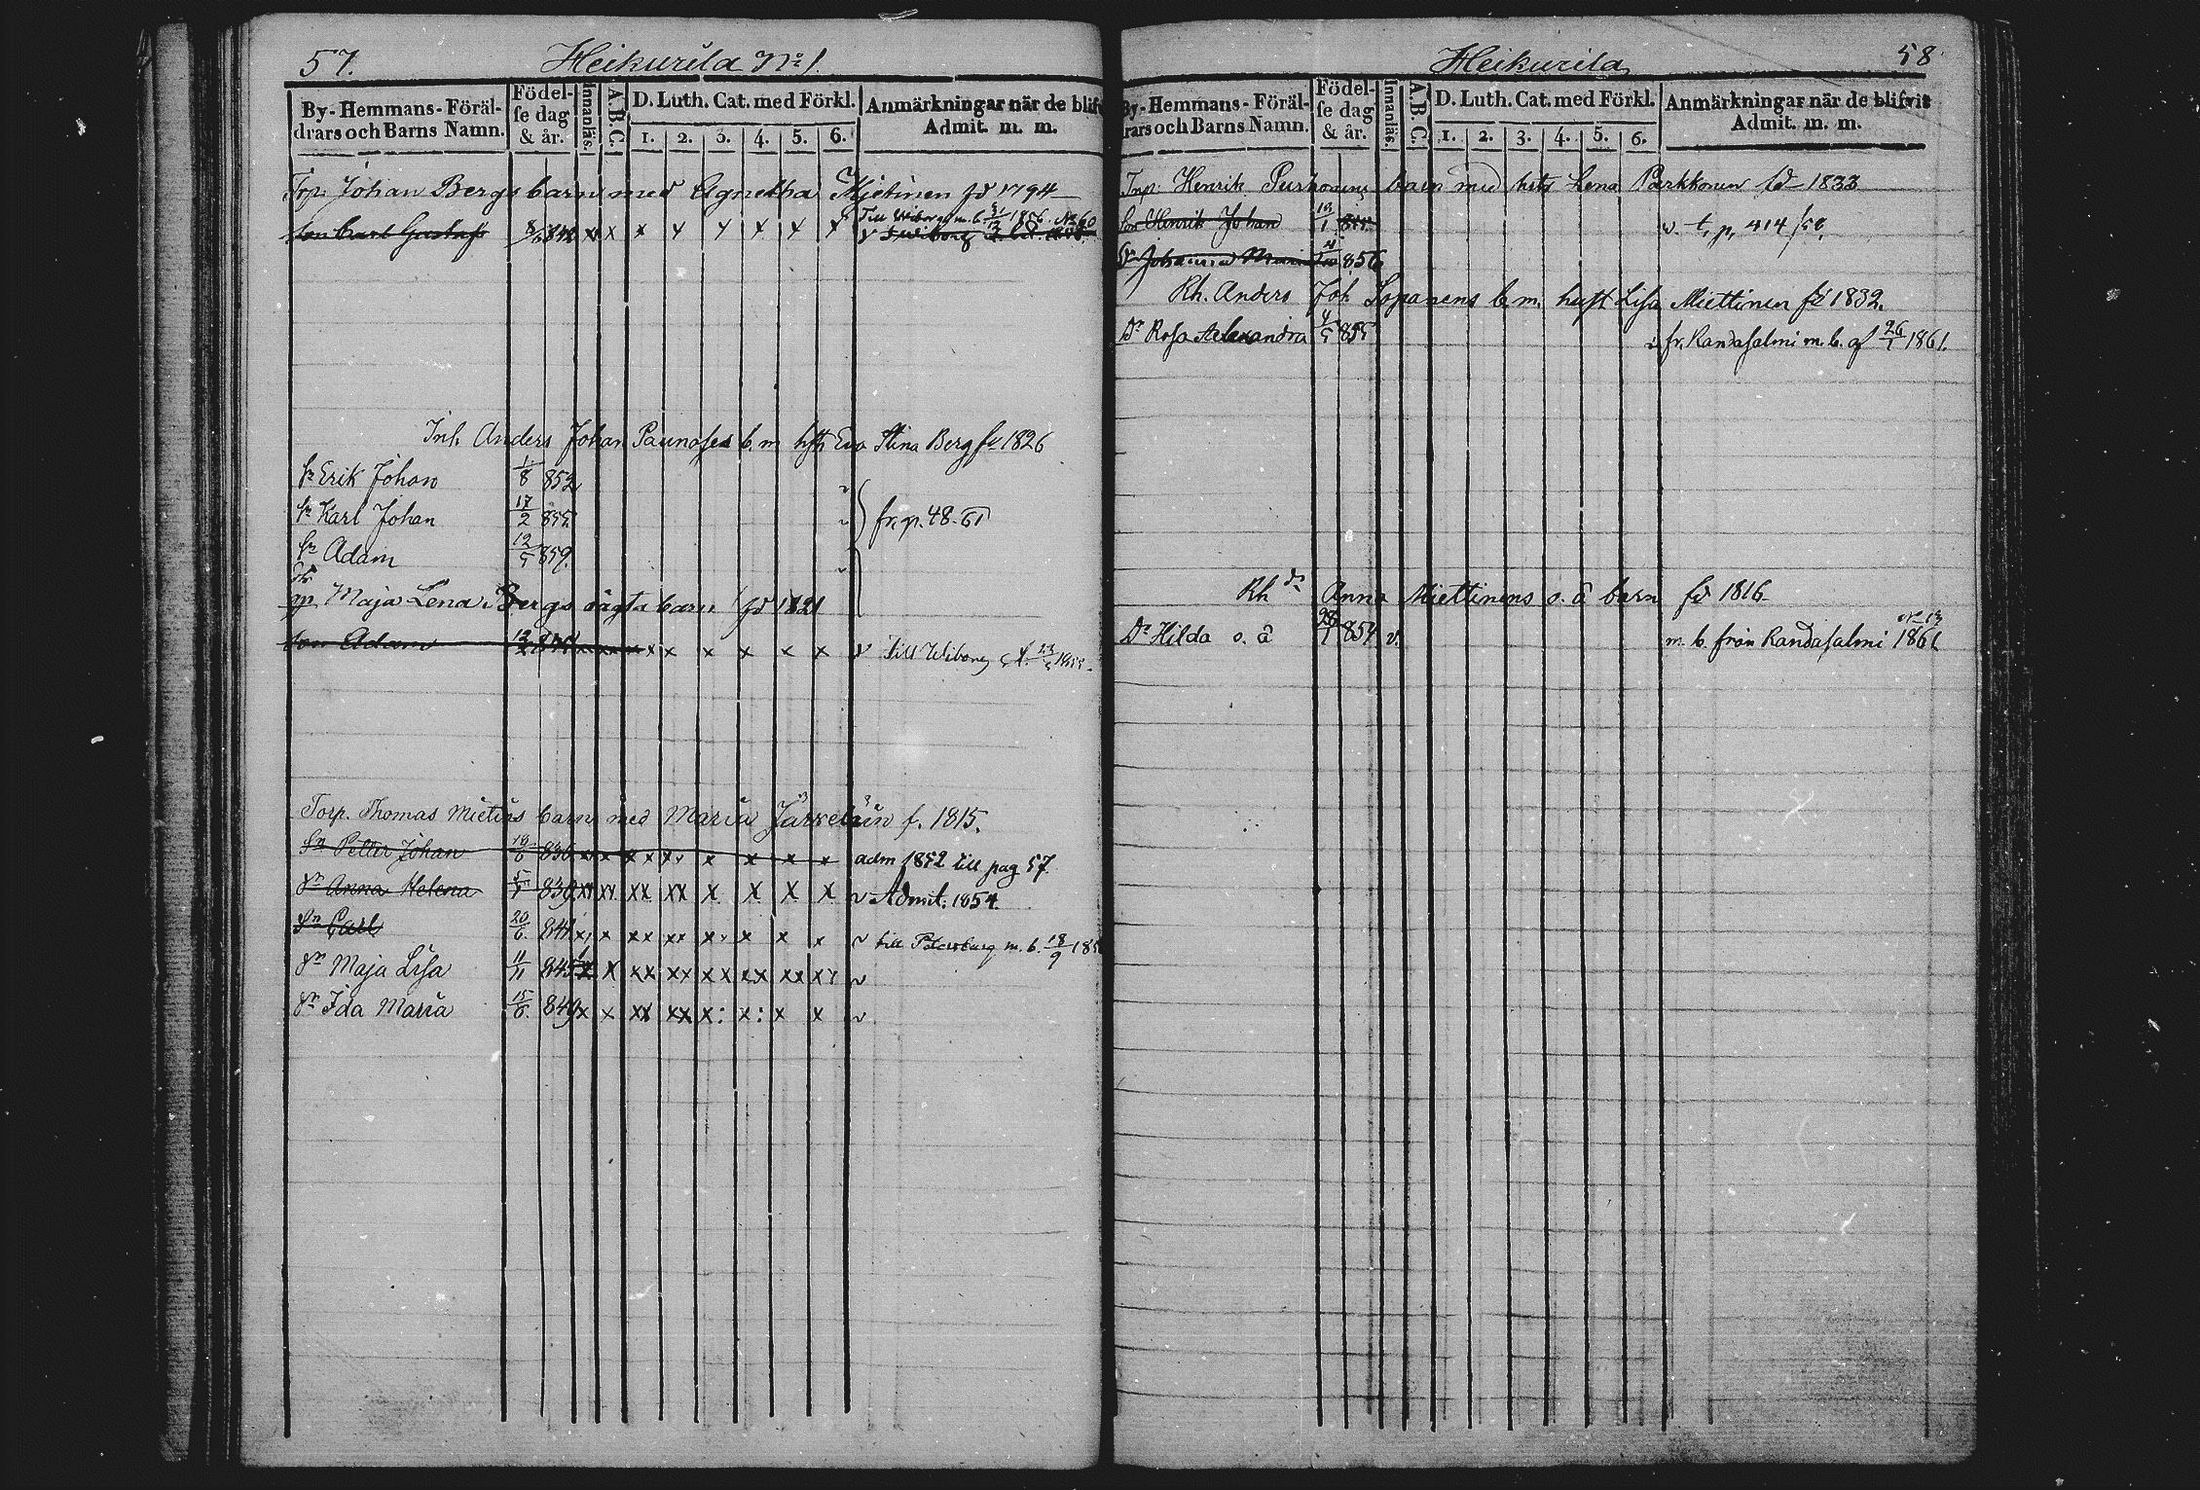 57. Heikurila No 1.
By-Hemmans-Föräl-
drars och Barns Namn.
Födel-
se dag
& år.
Innanläs.
A.B.C.
D. Luth. Cat. med Förkl.
1. 2. 3. 4. 5. 6.
Anmärkningar när de blifv
Admit. m. m.
Torp. Johan Bergs barn med Agnetha fd 1794
son Carl Gustaf x x x x x x x Till Wiborg m. b. 1856. No 60
v
Inh. Anders Johan Paunoses b. m. hstr Eva Stina Berg fd 1826
sn Erik Johan 1/8 852
sn Karl Johan 17/2 855 fr. p. 48-61
sn Adam 12/5 859.
Maja Lena Bergs oägta barn fd 1821
son Adam 12/2 x x x x x x v till Wiborg
Torp. Thomas Mietins barn med Maria f. 1815.
Sn Petter Johan 18/6 836 x x x x x x x adm 1852 till pag 57
dr Anna Helena 5/1 839 xx xx xx xx x x x x v Admit. 1854.
Sn Carl 20/6. 841 x x xx xx x x x x v till Petersburg m. b. 18/9 185
dr Maja Lisa 11/11 845 x x xx xx xx xx xx xx v
dr Ida Maria 15/6. 849 x x xx xx x: x: x x v
Heikurila 58
By-Hemmans-Föräl-
drars och Barns Namn.
Födel-
se dag
& år.
Innanläs.
A.B.C.
D. Luth. Cat. med Förkl.
1. 2. 3. 4. 5. 6.
Anmärkningar när de blifvit
Admit. m. m.
Inp. Henrik Purhonens barn med hstr Lena Parkkonen fd 1833
son Henrik Johan v. t. p. 414/50.
Dr Johanna 856
Rh. Anders Joh Sopanens b. m. hust Lisa Miettinen fd 1832.
Dr Rosa Alexandra 4/5 855 fr. Randasalmi m. b. af 26/1 1861.
Rh dr Anna Miettinens o. ä barn fd 1816
Dr Hilda o. ä 26/1 854 v. m. b. från Randasalmi 1861